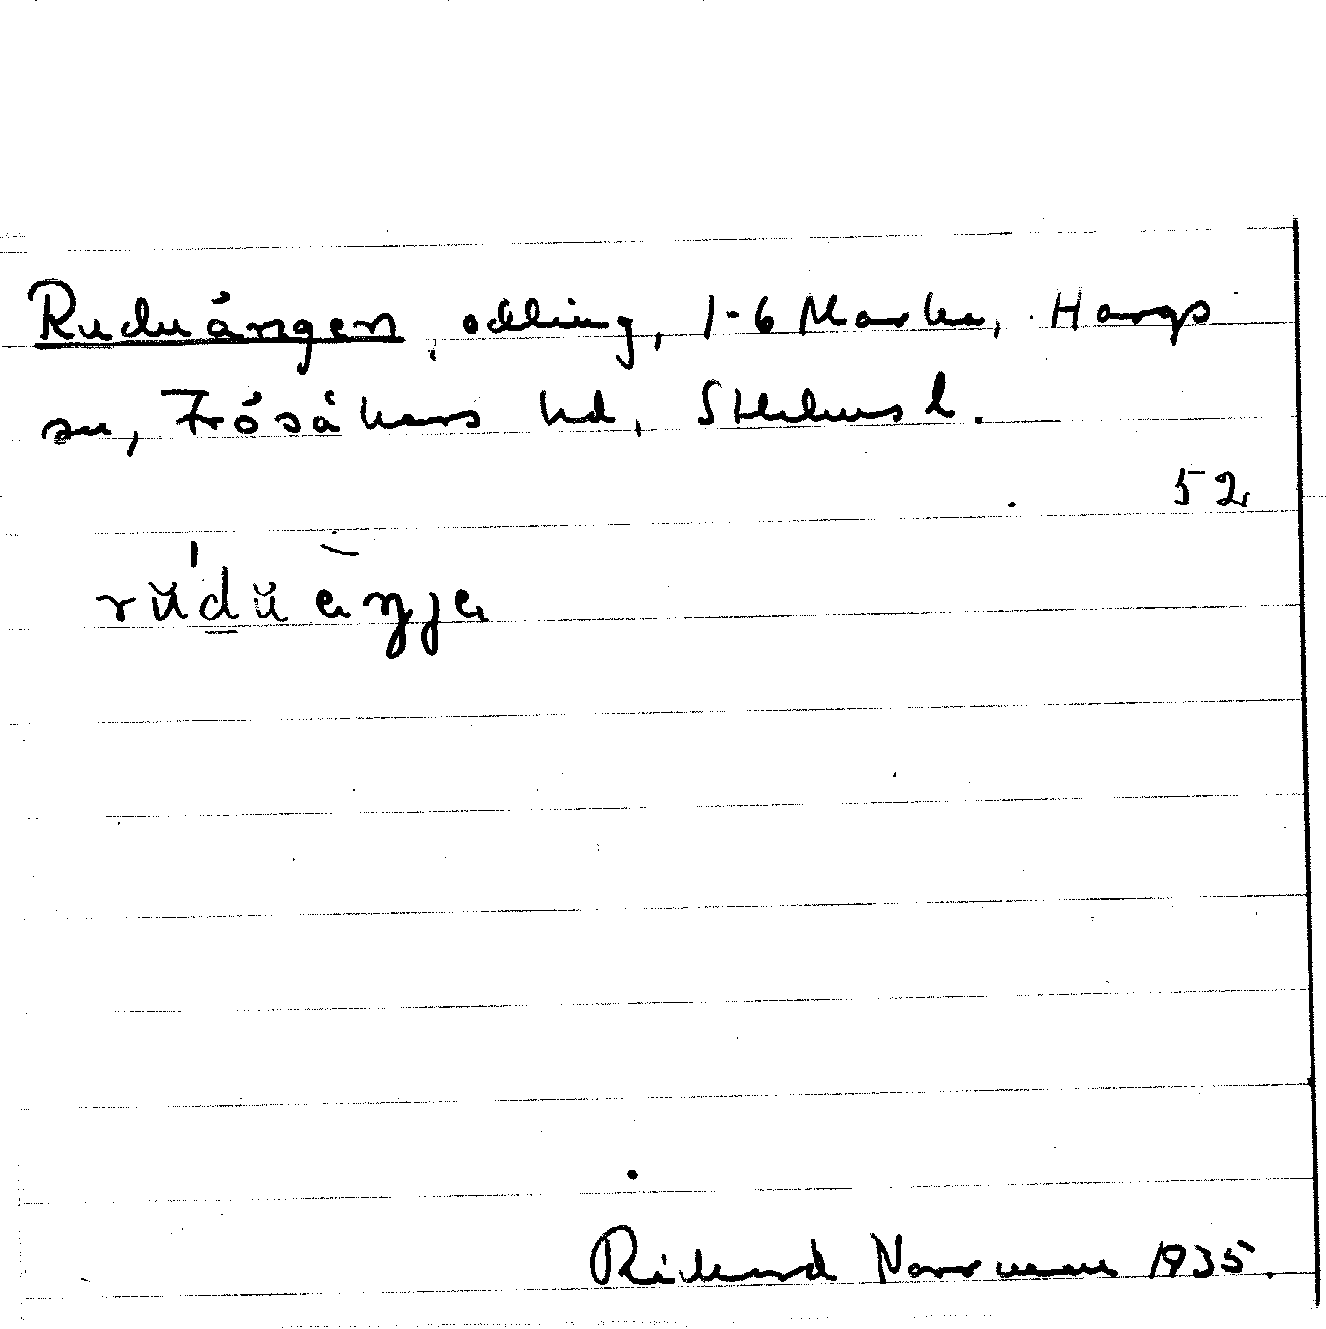 Ruduängen, odling, 1-6 Marka, Hargs
sn, Frösåkers hd, Sthlms l.
52
rŭdŭ ęŋja
Rickard Norrman 1935.